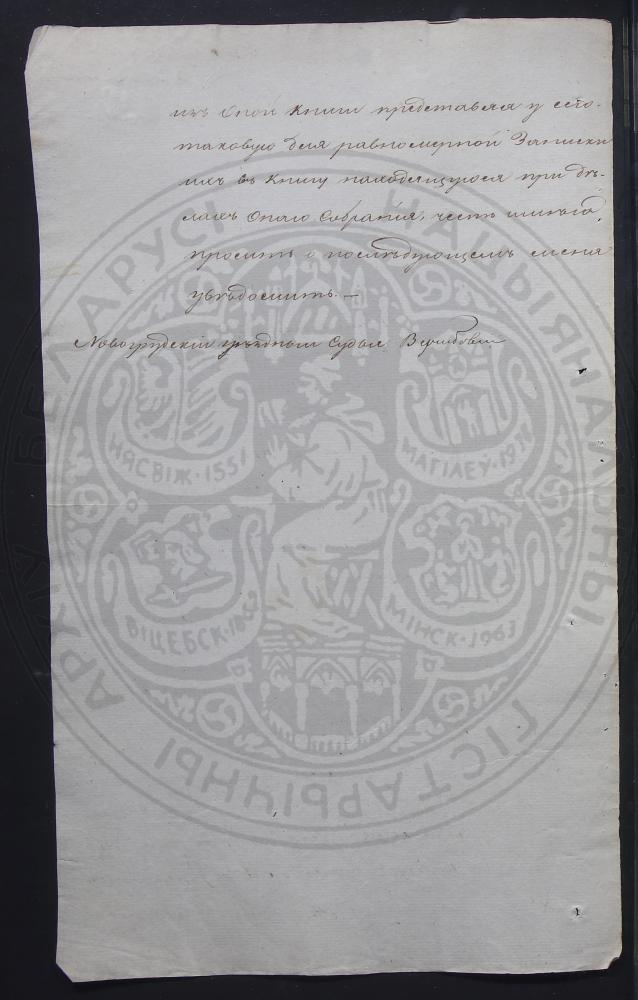 изъ оной книги представляя у сего
таковую для равномерной Записки
ихъ въ книгу находящуюся при дѣ-
лахъ онаго Собранія, честь имѣю
просить о послѣдующемъ меня
увѣдомить. —
Новогрудскій уѣздный Судья
НАЦЫЯНАЛЬНЫ
ГІСТАРЫЧНЫ
АРХІЎ БЕЛАРУСІ
НЯСВІЖ · 1551
МАГІЛЕЎ
ВІЦЕБСК
МІНСК · 1963